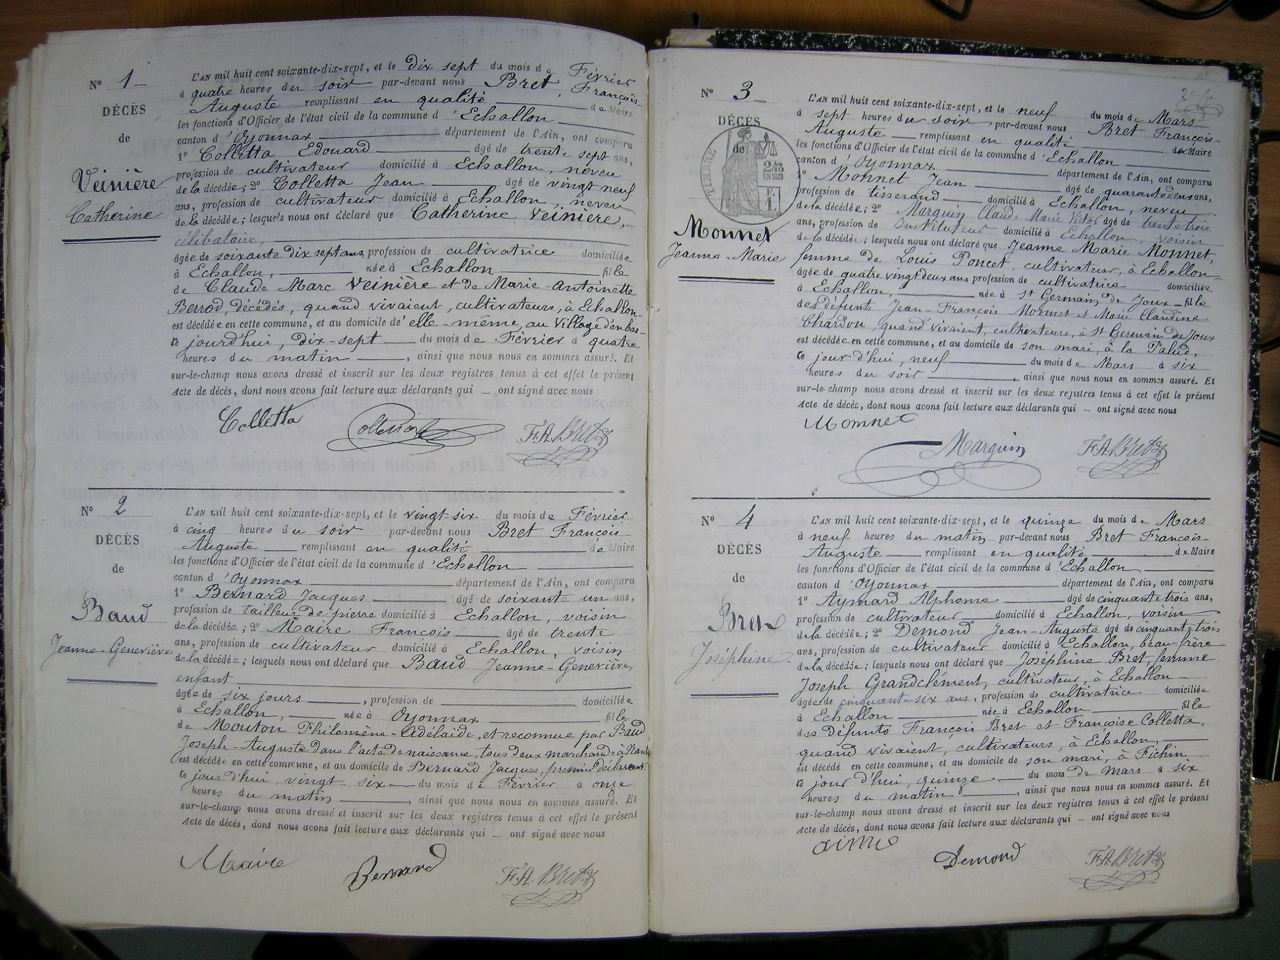 N° 1
DÉCÈS
de
Veinière
Catherine
L'AN mil huit cent soixante-dix-sept, et le dix sept du mois de Février
à quatre heures du soir par-devant nous Bret, François
Auguste remplissant en qualité de Maire
les fonctions d'Officier de l'état civil de la commune d'Echallon
canton d'Oyonnax département de l'Ain, ont comparu
1° Colletta Edouard âgé de trente sept ans,
profession de cultivateur domicilié à Echallon, neveu
de la décédée; 2° Colletta Jean âgé de vingt neuf
ans, profession de cultivateur domicilié à Echallon, neveu
de la décédée; lesquels nous ont déclaré que Catherine Veinière,
célibataire,
âgée de soixante dix sept ans profession de cultivatrice domiciliée
à Echallon, née à Echallon fille
de Claude Marc Veinière et de Marie Antoinette
Berod, décédés, quand vivaient, cultivateurs, à Echallon
est décédée en cette commune, et au domicile d'elle-même, au Village d'en bas
ce jourd'hui, dix-sept du mois de Février à quatre
heures du matin, ainsi que nous nous en sommes assuré. Et
sur-le-champ nous avons dressé et inscrit sur les deux registres tenus à cet effet le présent
acte de décès, dont nous avons fait lecture aux déclarants qui ont signé avec nous
Colletta
Colletta
F.A. Bret
N° 2
DÉCÈS
de
Baud
Jeanne-Geneviève
L'AN mil huit cent soixante-dix-sept, et le vingt-six du mois de Février
à cinq heures du soir par-devant nous Bret François
Auguste remplissant en qualité de Maire
les fonctions d'Officier de l'état civil de la commune d'Echallon
canton d'Oyonnax département de l'Ain, ont comparu
1° Bernard Jacques âgé de soixante un ans,
profession de tailleur de pierre domicilié à Echallon, voisin
de la décédée; 2° Maire François âgé de trente
ans, profession de cultivateur domicilié à Echallon, voisin
de la décédée; lesquels nous ont déclaré que Baud Jeanne-Geneviève,
enfant
âgée de six jours, profession de domiciliée
à Echallon, née à Oyonnax fille
de Mouton Philomène-Adelaïde, et reconnue par Baud
Joseph-Auguste dans l'acte de naissance, tous deux marchands à
est décédée en cette commune, et au domicile de Bernard Jacques, premier déclarant
ce jourd'hui vingt-six du mois de Février à onze
heures du matin, ainsi que nous nous en sommes assuré. Et
sur-le-champ nous avons dressé et inscrit sur les deux registres tenus à cet effet le présent
acte de décès, dont nous avons fait lecture aux déclarants qui ont signé avec nous
Maire
Bernard
F.A. Bret
N° 3
DÉCÈS
de
Monnet
Jeanne-Marie
L'AN mil huit cent soixante-dix-sept, et le neuf du mois de Mars
à sept heures du soir, par-devant nous Bret François-
Auguste remplissant en qualité de Maire
les fonctions d'Officier de l'état civil de la commune d'Echallon
canton d'Oyonnax département de l'Ain, ont comparu
1° Monnet Jean âgé de quarante deux ans,
profession de tisserand domicilié à Echallon, neveu
de la décédée; 2° Marguin Claude Marie Victor âgé de trente trois
ans, profession de Instituteur domicilié à Echallon, voisin
de la décédée; lesquels nous ont déclaré que Jeanne Marie Monnet,
femme de Louis Poncet, cultivateur, à Echallon
âgée de quatre vingt deux ans profession de cultivatrice domiciliée
à Echallon, née à St Germain de Joux fille
des défunts Jean-François Monnet et Marie Claudine
Chardon, quand vivaient, cultivateurs, à St Germain de Joux
est décédée en cette commune, et au domicile de son mari, à la Palud,
ce jourd'hui, neuf du mois de Mars à six
heures du soir, ainsi que nous nous en sommes assuré. Et
sur-le-champ nous avons dressé et inscrit sur les deux registres tenus à cet effet le présent
acte de décès, dont nous avons fait lecture aux déclarants qui ont signé avec nous
Monnet
Marguin
F.A. Bret
N° 4
DÉCÈS
de
Bret
Joséphine
L'AN mil huit cent soixante-dix-sept, et le quinze du mois de Mars
à neuf heures du matin par-devant nous Bret François-
Auguste remplissant en qualité de Maire
les fonctions d'Officier de l'état civil de la commune d'Echallon
canton d'Oyonnax département de l'Ain, ont comparu
1° Aymard Alphonse âgé de cinquante trois ans,
profession de cultivateur domicilié à Echallon, voisin
de la décédée; 2° Demond Jean-Auguste âgé de cinquante trois
ans, profession de cultivateur domicilié à Echallon, beau-frère
de la décédée; lesquels nous ont déclaré que Joséphine Bret, femme
Joseph Grandclément, cultivateur, à Echallon
âgée de cinquante-six ans, profession de cultivatrice domiciliée
à Echallon née à Echallon fille
des Défunts François Bret et Françoise Colletta,
quand vivaient, cultivateurs, à Echallon,
est décédée en cette commune, et au domicile de son mari, à Fichin
ce jourd'hui, quinze du mois de Mars à six
heures du matin, ainsi que nous nous en sommes assuré. Et
sur-le-champ nous avons dressé et inscrit sur les deux registres tenus à cet effet le présent
acte de décès, dont nous avons fait lecture aux déclarants qui ont signé avec nous
Demond
F.A. Bret